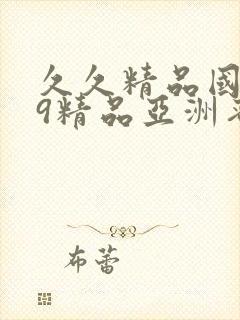 久久精品國
9精品亞洲
布蕾